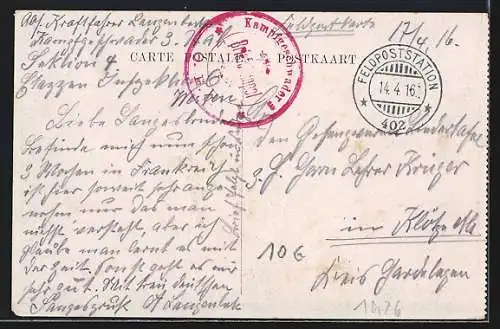 Abs. Kraftfahrer Langenbek
Kampfgeschwader 3
Sektion 4
Etappen Inspektion
Feldpostkarte
17/4 16.
CARTE POSTALE POSTKAART
Kampfgeschwader
FELDPOSTSTATION
14.4.16.
* 402 *
Liebe Sangesbrüder
Befinde mich nun schon
3 Wochen in Frankreich
ist hier soweit sehr ange-
nehm nur das man
nichts versteht, aber ich
glaube man lernt es mit
der Zeit. Sonst geht es mir
sehr gut. Mit treu deutschen
Sangesgruß A Langenbek
Brief folgt
den Gesangverein Liedertafel
z. H. Herrn Lehrer Krüger
in Klötze
Kreis Gardelegen
10€